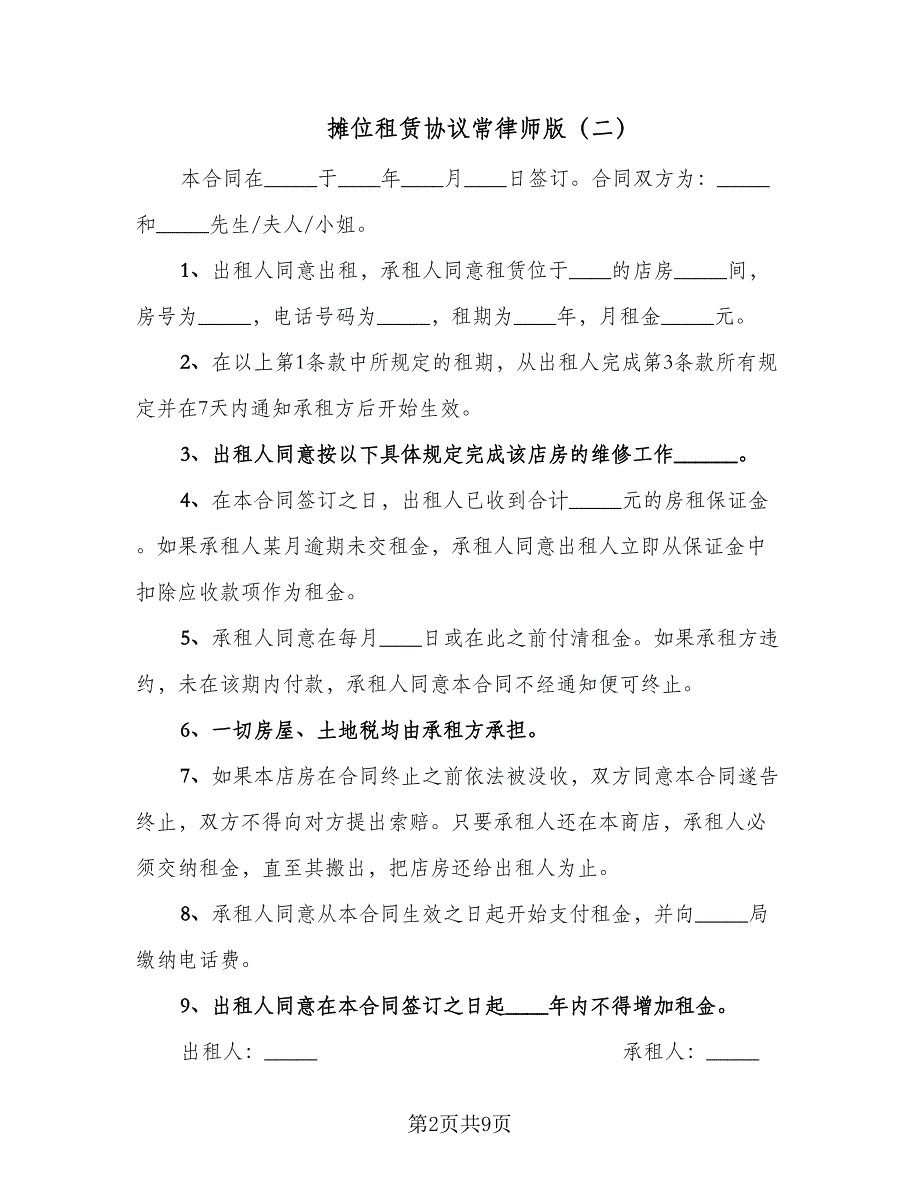 摊位租赁协议常律师版（二）
本合同在_____于____年____月____日签订。合同双方为：_____
和_____先生/夫人/小姐。
1、出租人同意出租，承租人同意租赁位于____的店房_____间，
房号为_____，电话号码为_____，租期为____年，月租金_____元。
2、在以上第1条款中所规定的租期，从出租人完成第3条款所有规
定并在7天内通知承租方后开始生效。
3、出租人同意按以下具体规定完成该店房的维修工作______。
4、在本合同签订之日，出租人已收到合计_____元的房租保证金
。如果承租人某月逾期未交租金，承租人同意出租人立即从保证金中
扣除应收款项作为租金。
5、承租人同意在每月____日或在此之前付清租金。如果承租方违
约，未在该期内付款，承租人同意本合同不经通知便可终止。
6、一切房屋、土地税均由承租方承担。
7、如果本店房在合同终止之前依法被没收，双方同意本合同遂告
终止，双方不得向对方提出索赔。只要承租人还在本商店，承租人必
须交纳租金，直至其搬出，把店房还给出租人为止。
8、承租人同意从本合同生效之日起开始支付租金，并向_____局
缴纳电话费。
9、出租人同意在本合同签订之日起____年内不得增加租金。
出租人：_____ 承租人：_____
第2页共9页